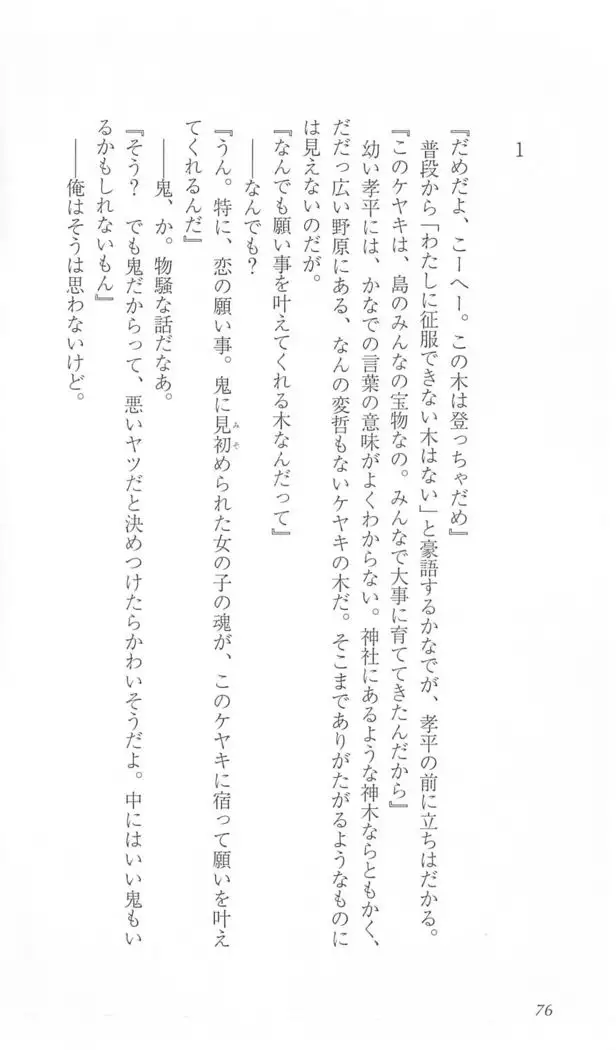 1
『だめだよ、こーへー。この木は登っちゃだめ』
　普段から「わたしに征服できない木はない」と豪語するかなでが、孝平の前に立ちはだかる。
『このケヤキは、島のみんなの宝物なの。みんなで大事に育ててきたんだから』
　幼い孝平には、かなでの言葉の意味がよくわからない。神社にあるような神木ならともかく、
だだっ広い野原にある、なんの変哲もないケヤキの木だ。そこまでありがたがるようなものに
は見えないのだが。
『なんでも願い事を叶えてくれる木なんだって』
　――なんでも？
『うん。特に、恋の願い事。鬼に見初められた女の子の魂が、このケヤキに宿って願いを叶え
てくれるんだ』
　――鬼、か。物騒な話だなあ。
『そう？　でも鬼だからって、悪いヤツだと決めつけたらかわいそうだよ。中にはいい鬼もい
るかもしれないもん』
　――俺はそうは思わないけど。
みそ
76